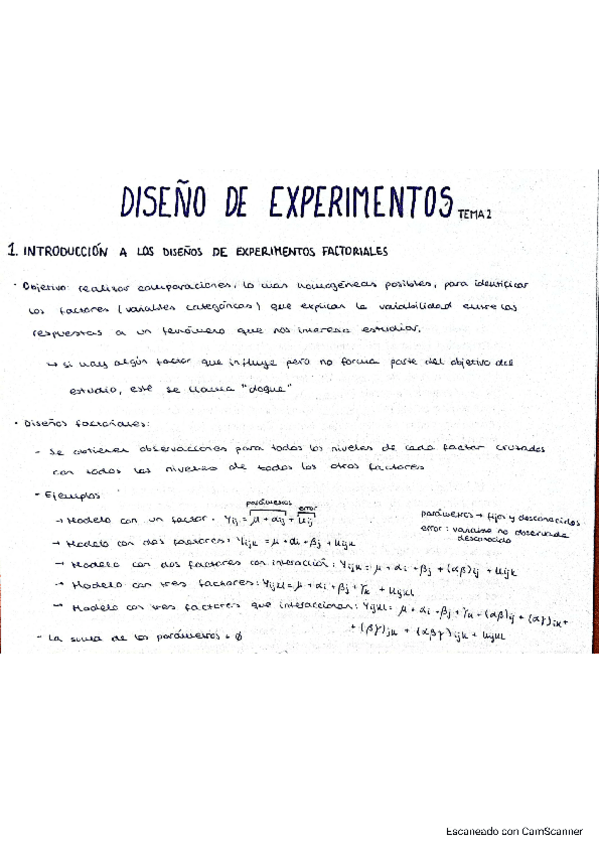 DISEÑO DE EXPERIMENTOS TEMA 2
1. INTRODUCCIÓN A LOS DISEÑOS DE EXPERIMENTOS FACTORIALES
· Objetivo: realizar comparaciones, lo más homogéneas posibles, para identificar
los factores (variables categóricas) que explican la variabilidad entre las
respuestas a un fenómeno que nos interesa estudiar.
↳ si hay algún factor que influye pero no forma parte del objetivo del
estudio, este se llama "bloque"
· Diseños factoriales:
- Se obtienen observaciones para todos los niveles de cada factor cruzados
con todos los niveles de todos los otros factores
- Ejemplos
parámetros
error
→ Modelo con un factor: Yij = μ + αij + uij
parámetros → fijos y desconocidos
error: variable no observada
desconocido
→ Modelo con dos factores: Yijk = μ + αi + βj + uijk
→ Modelo con dos factores con interacción: Yijk = μ + αi + βj + (αβ)ij + uijk
→ Modelo con tres factores: Yijkl = μ + αi + βj + γk + uijkl
→ Modelo con tres factores que interaccionan: Yijkl = μ + αi + βj + γk + (αβ)ij + (αγ)ik +
+ (βγ)jk + (αβγ)ijk + uijkl
- La suma de los parámetros = ∅
Escaneado con CamScanner